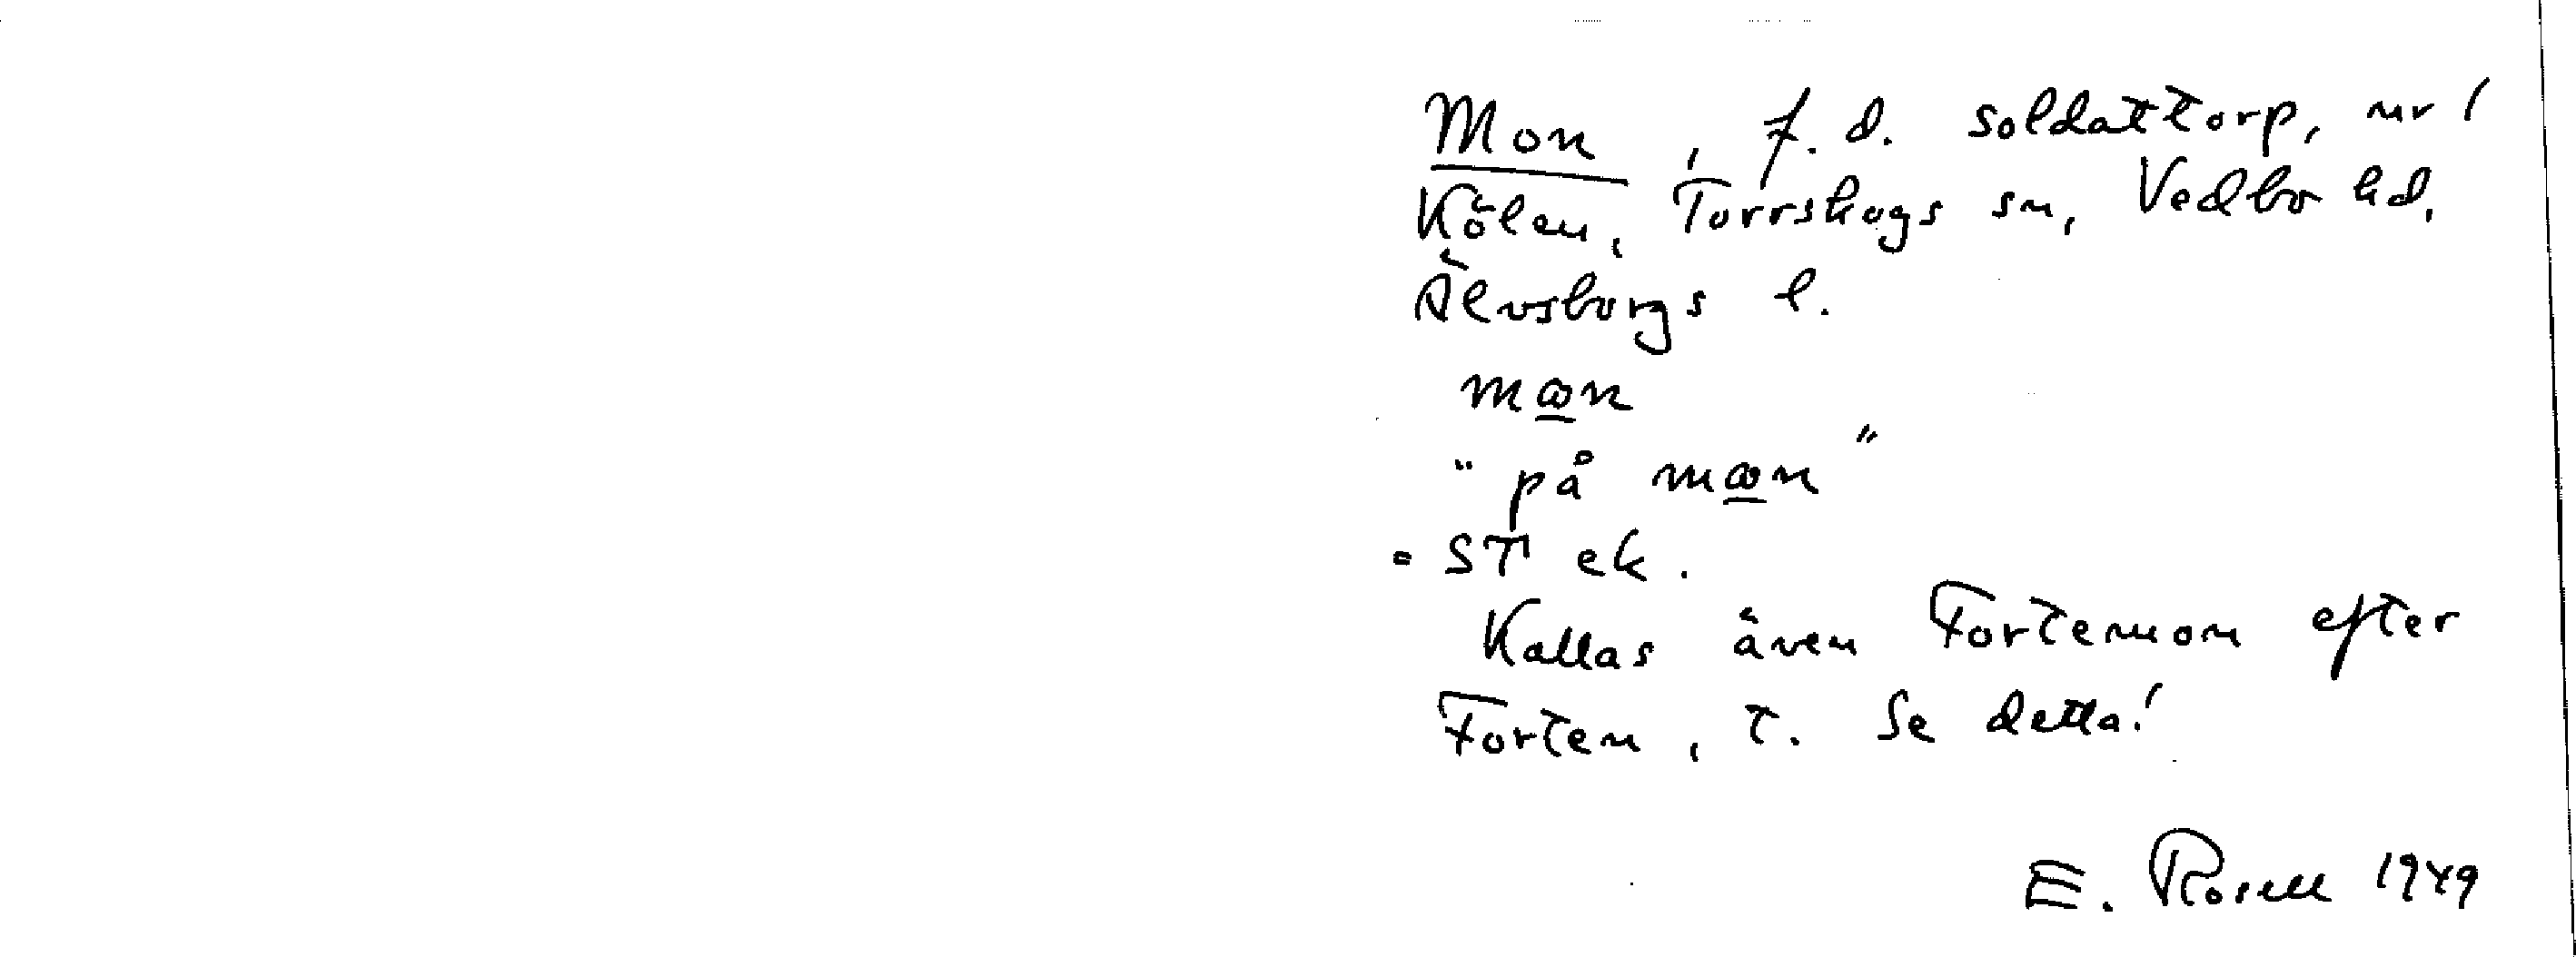 Mon, f.d. soldattorp, nr 1
Kölen, Torrskogs sn, Vedbo hd,
Älvsborgs l.
mꚙn
"på mꚙn"
= ST ek.
Kallas även Fortemon efter
Forten, t. Se detta!
E. Rosell 1949